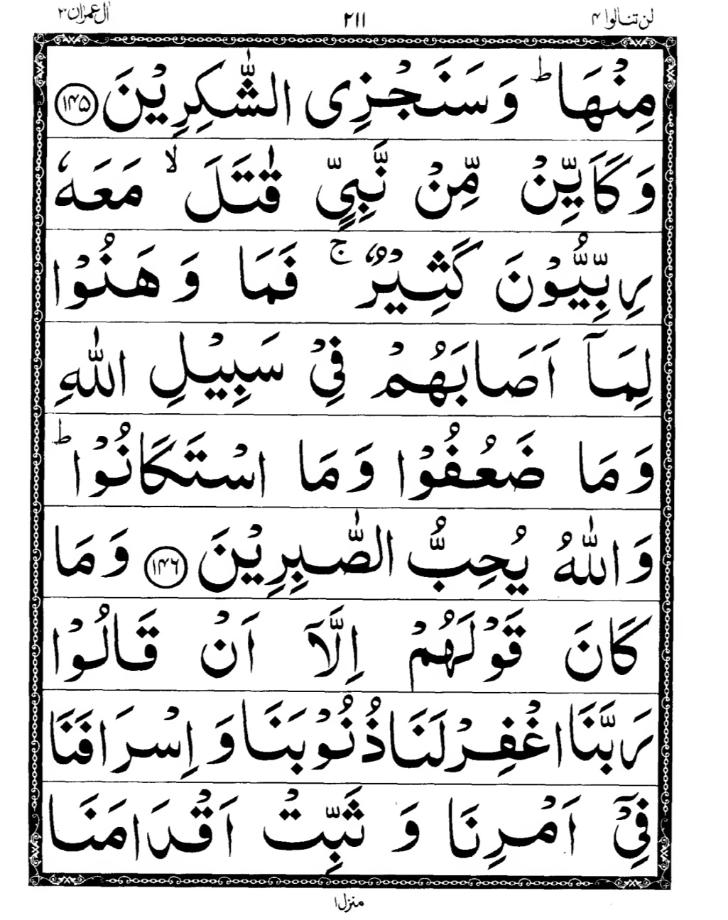 لن تنالوا ۴ ۲۱۱ ال عمران ۳
مِنْهَا ؕ وَسَنَجْزِی الشّٰكِرِیْنَ ﴿۱۴۵﴾
وَكَاَیِّنْ مِّنْ نَّبِیٍّ قٰتَلَ ۙ مَعَهٗ
رِبِّیُّوْنَ كَثِیْرٌ ۚ فَمَا وَهَنُوْا
لِمَاۤ اَصَابَهُمْ فِیْ سَبِیْلِ اللّٰهِ
وَمَا ضَعُفُوْا وَمَا اسْتَكَانُوْا ؕ
وَاللّٰهُ یُحِبُّ الصّٰبِرِیْنَ ﴿۱۴۶﴾ وَمَا
كَانَ قَوْلَهُمْ اِلَّاۤ اَنْ قَالُوْا
رَبَّنَا اغْفِرْ لَنَا ذُنُوْبَنَا وَ اِسْرَافَنَا
فِیْۤ اَمْرِنَا وَ ثَبِّتْ اَقْدَامَنَا
منزل ۱